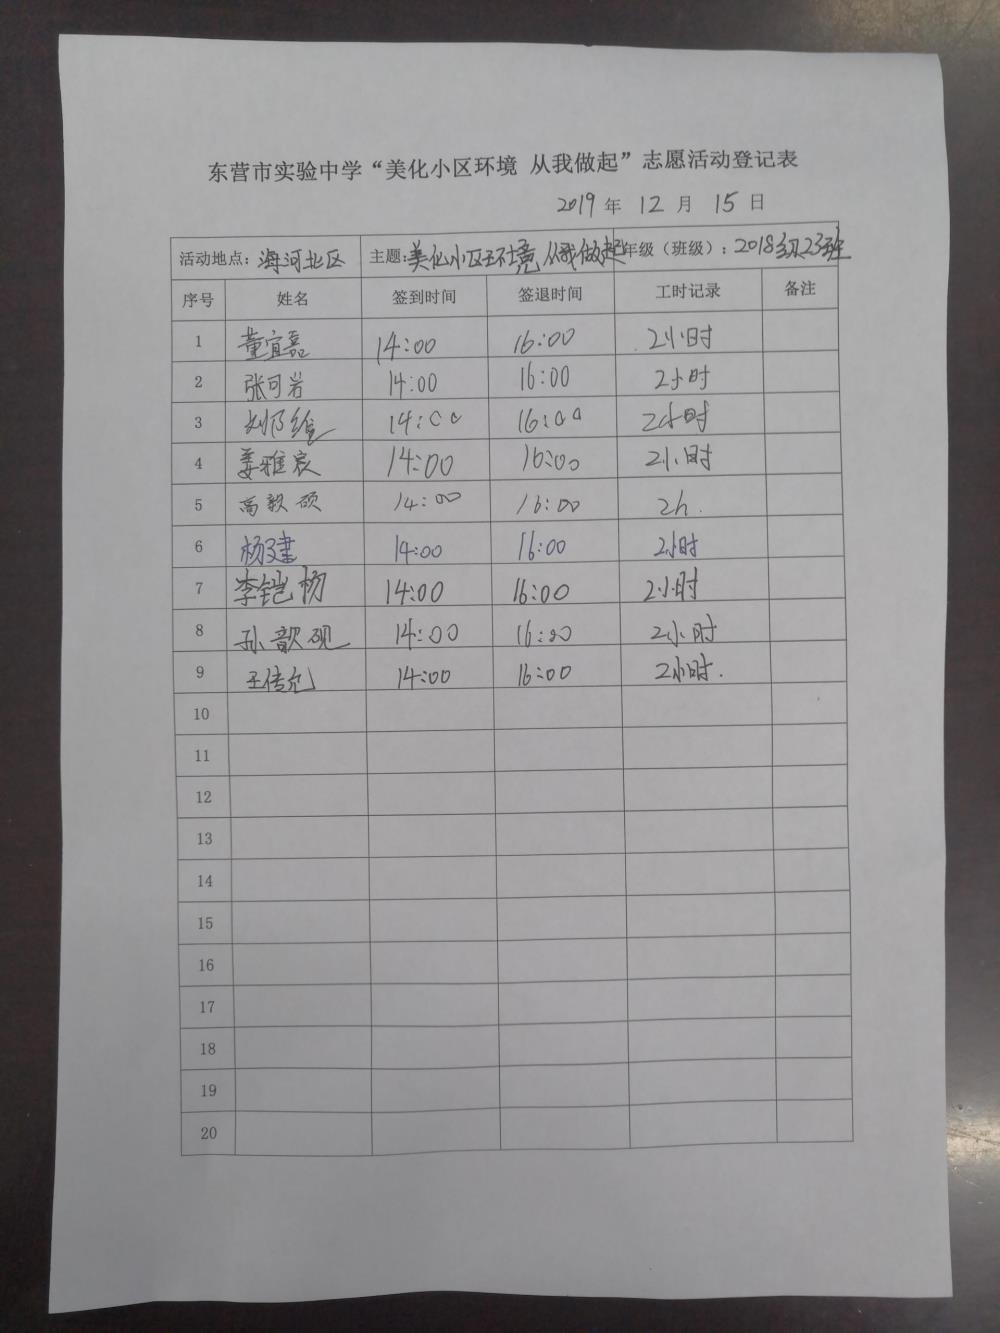 东营市实验中学“美化小区环境 从我做起”志愿活动登记表
2019 年 12 月 15 日
活动地点：海河北区 主题：美化小区环境 从我做起 年级（班级）：2018级23班
序号 姓名 签到时间 签退时间 工时记录 备注
1 董宜磊 14:00 16:00 2小时
2 张可岩 14:00 16:00 2小时
3 14:00 16:00 2小时
4 姜雅宸 14:00 16:00 2小时
5 高歆硕 14:00 16:00 2h.
6 杨建 14:00 16:00 2小时
7 李铠杨 14:00 16:00 2小时
8 孙歆砚 14:00 16:00 2小时
9 王传允 14:00 16:00 2小时.
10
11
12
13
14
15
16
17
18
19
20